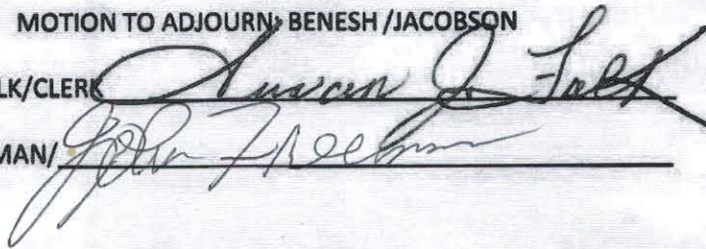 MOTION TO ADJOURN: BENESH /JACOBSON
LK/CLERK Susan J. Falk
MAN/ John Freeman